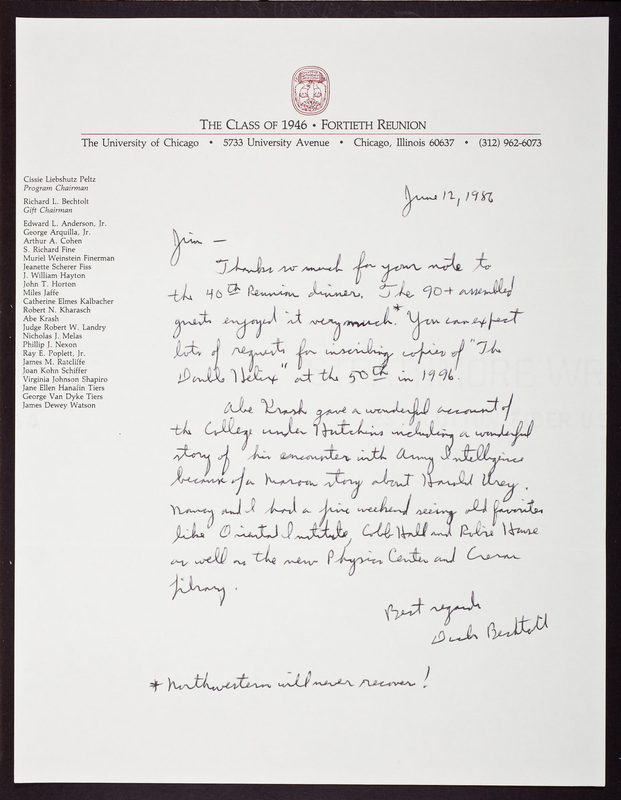 THE CLASS OF 1946 • FORTIETH REUNION
The University of Chicago • 5733 University Avenue • Chicago, Illinois 60637 • (312) 962-6073
Cissie Liebshutz Peltz
Program Chairman
Richard L. Bechtolt
Gift Chairman
Edward L. Anderson, Jr.
George Arquilla, Jr.
Arthur A. Cohen
S. Richard Fine
Muriel Weinstein Finerman
Jeanette Scherer Fiss
J. William Hayton
John T. Horton
Miles Jaffe
Catherine Elmes Kalbacher
Robert N. Kharasch
Abe Krash
Judge Robert W. Landry
Nicholas J. Melas
Phillip J. Nexon
Ray E. Poplett, Jr.
James M. Ratcliffe
Joan Kohn Schiffer
Virginia Johnson Shapiro
Jane Ellen Hanafin Tiers
George Van Dyke Tiers
James Dewey Watson
June 12, 1986
Jim —
Thanks so much for your note to
the 40th Reunion dinner. The 90+ assembled
guests enjoyed it very much.* You can expect
lots of requests for inscribing copies of "The
Double Helix" at the 50th in 1996.
Abe Krash gave a wonderful account of
the College under Hutchins including a wonderful
story of his encounter with Army Intelligence
because of a Maroon story about Harold Urey.
Nancy and I had a fine weekend seeing old favorites
like Oriental Institute, Cobb Hall and Robie House
as well as the new Physics Center and Crerar
Library.
Best regards
Dick Bechtolt
* Northwestern will never recover!